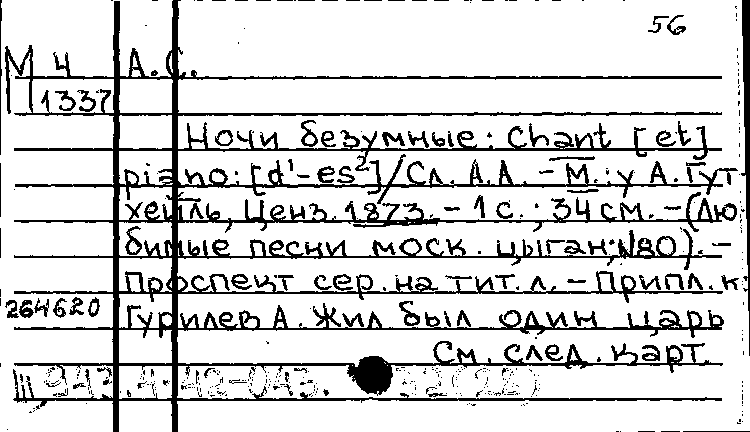 56
М 4 А.С.
1337
Ночи безумные: Chant [et]
piano: [d¹-es²] / Сл. А.А. - М.: у А. Гут-
хейль, Ценз. 1873. - 1 с.; 34 см. - (Лю-
бимые песни моск. цыган; №80). -
Проспект сер. на тит. л. - Припл. к:
264620 Гурилев А. Жил был один царь
См. след. карт.